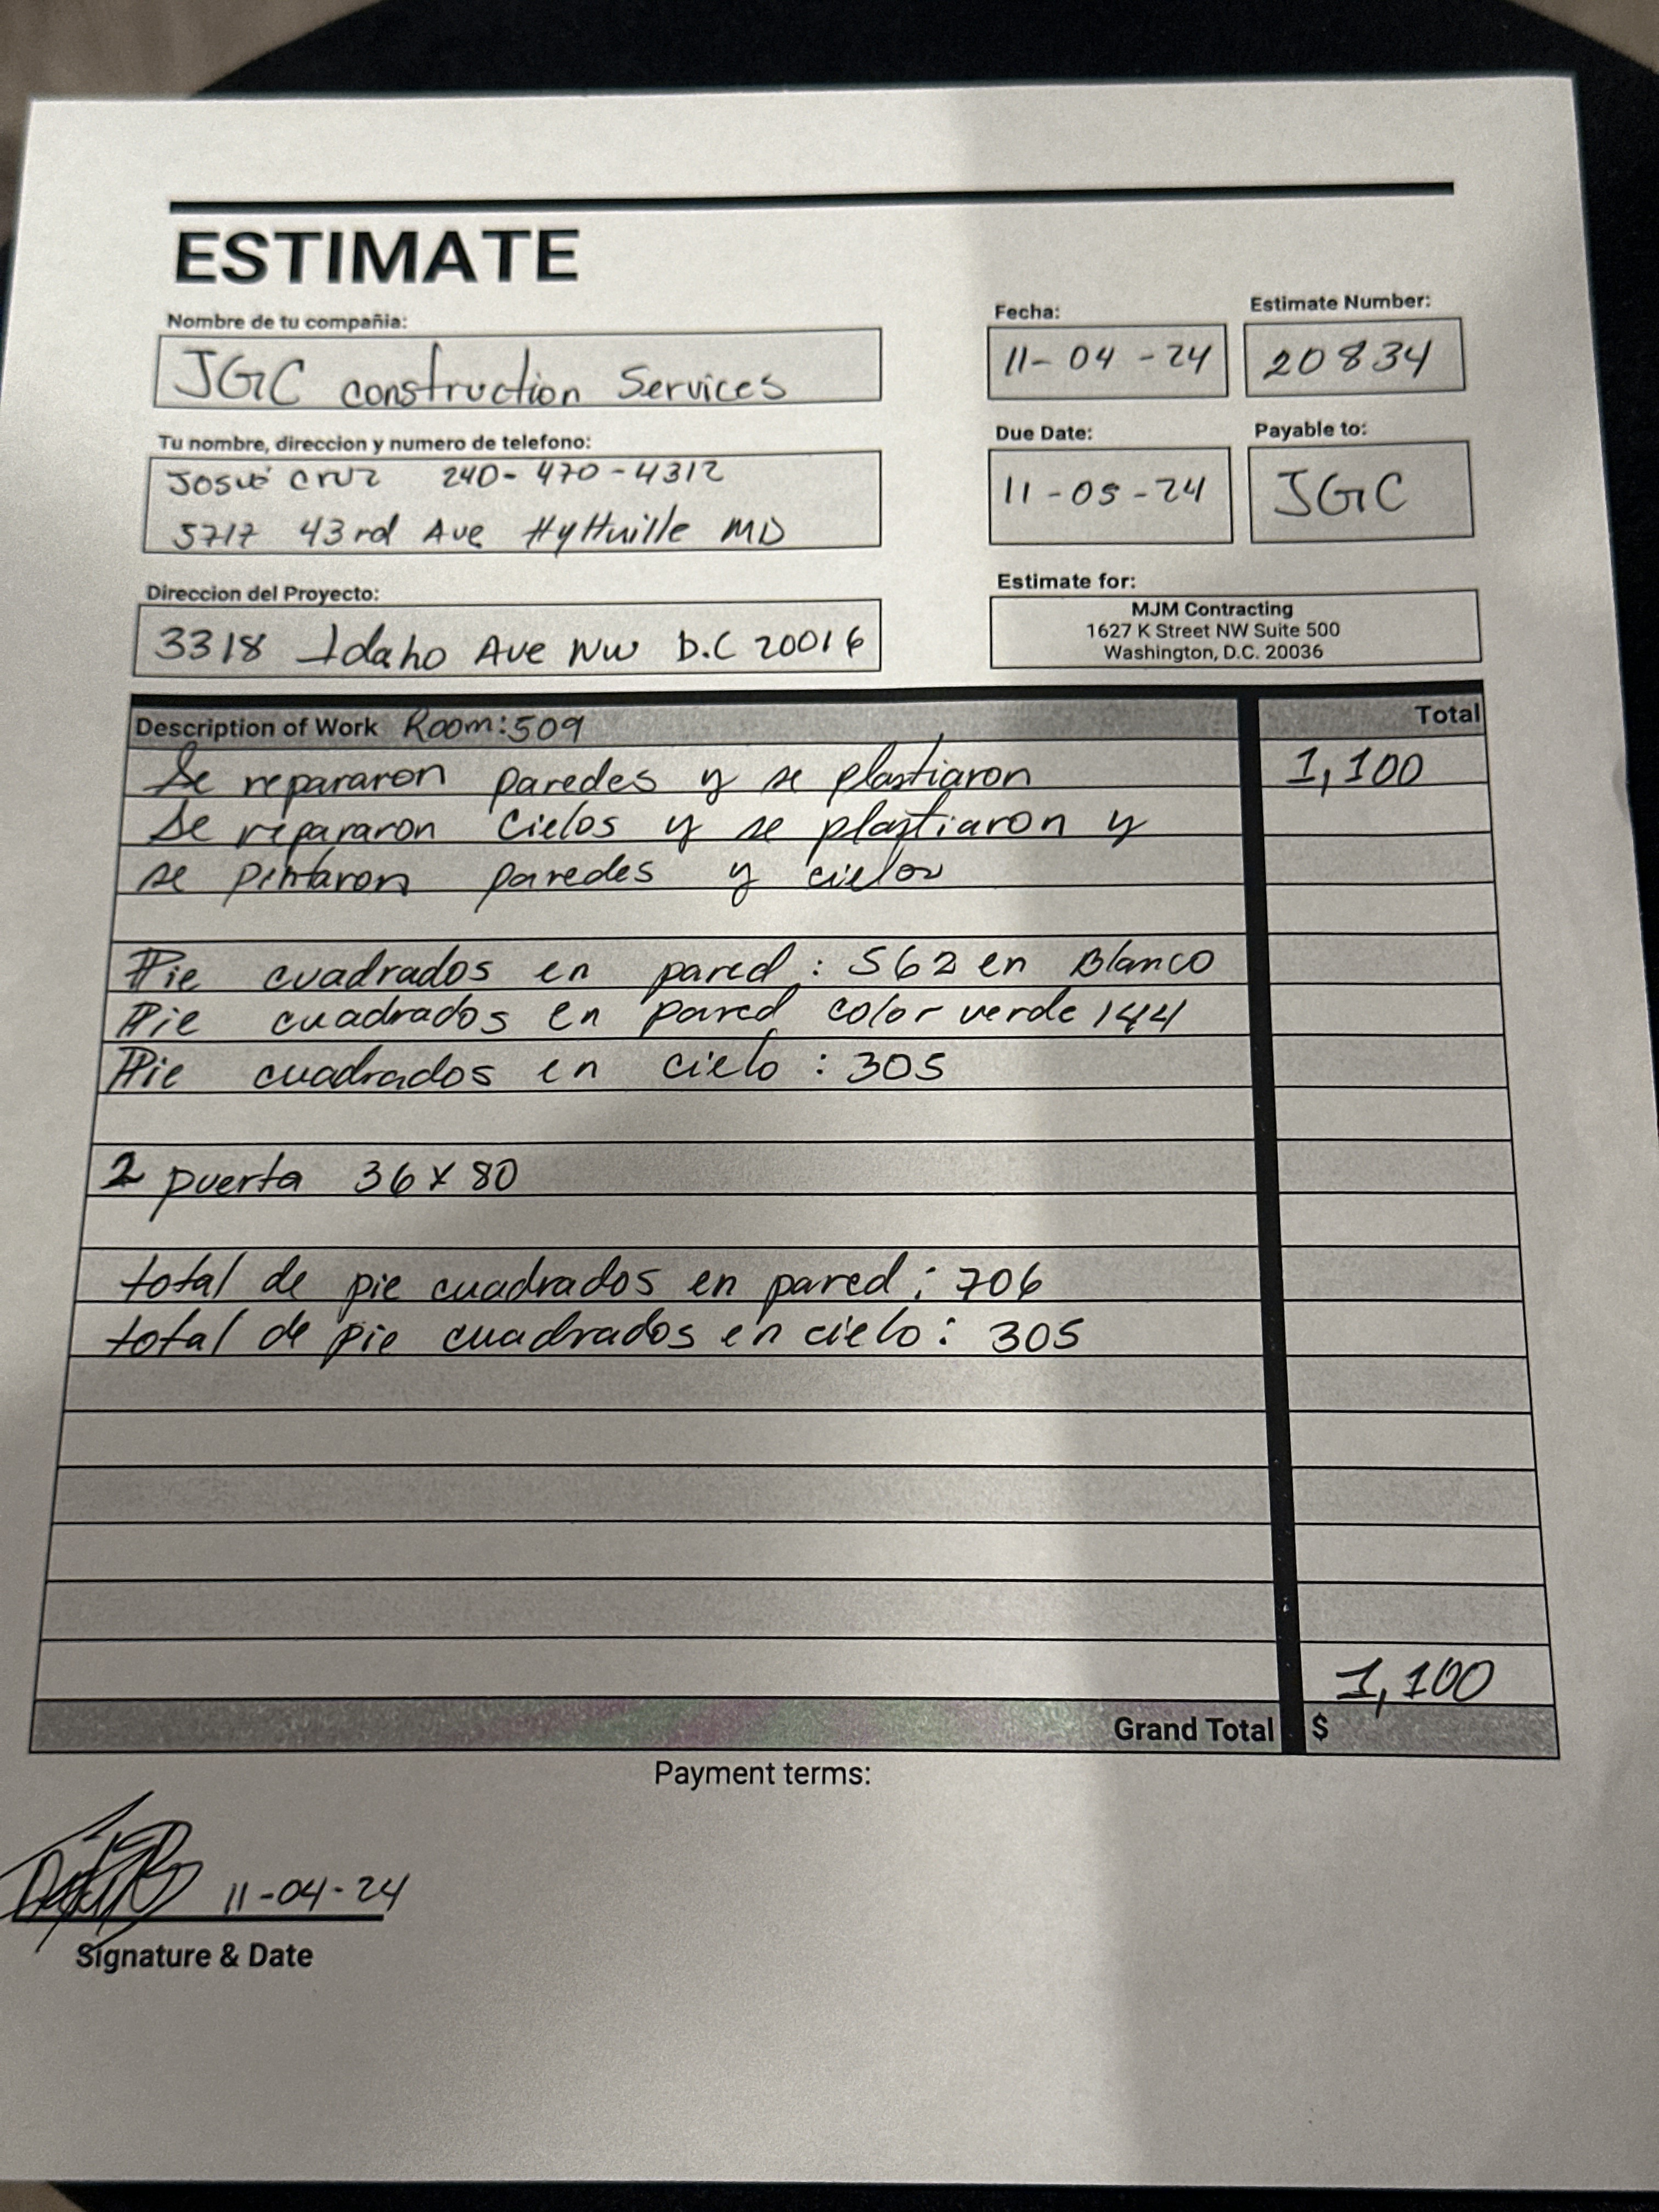 ESTIMATE
Nombre de tu compañia:
JGC construction Services
Fecha:
11-04-24
Estimate Number:
20834
Tu nombre, direccion y numero de telefono:
Josué Cruz 240-470-4312
5717 43rd Ave Hyttville MD
Due Date:
11-05-24
Payable to:
JGC
Direccion del Proyecto:
3318 Idaho Ave NW D.C 20016
Estimate for:
MJM Contracting
1627 K Street NW Suite 500
Washington, D.C. 20036
Description of Work Room:509
Total
Se repararon paredes y se plastiaron 1,100
Se repararon cielos y se plastiaron y
se pintaron paredes y cielos
Pie cuadrados en pared: 562 en Blanco
Pie cuadrados en pared color verde 144
Pie cuadrados en cielo: 305
2 puerta 36x80
total de pie cuadrados en pared: 706
total de pie cuadrados en cielo: 305
1,100
Grand Total $
Payment terms:
11-04-24
Signature & Date